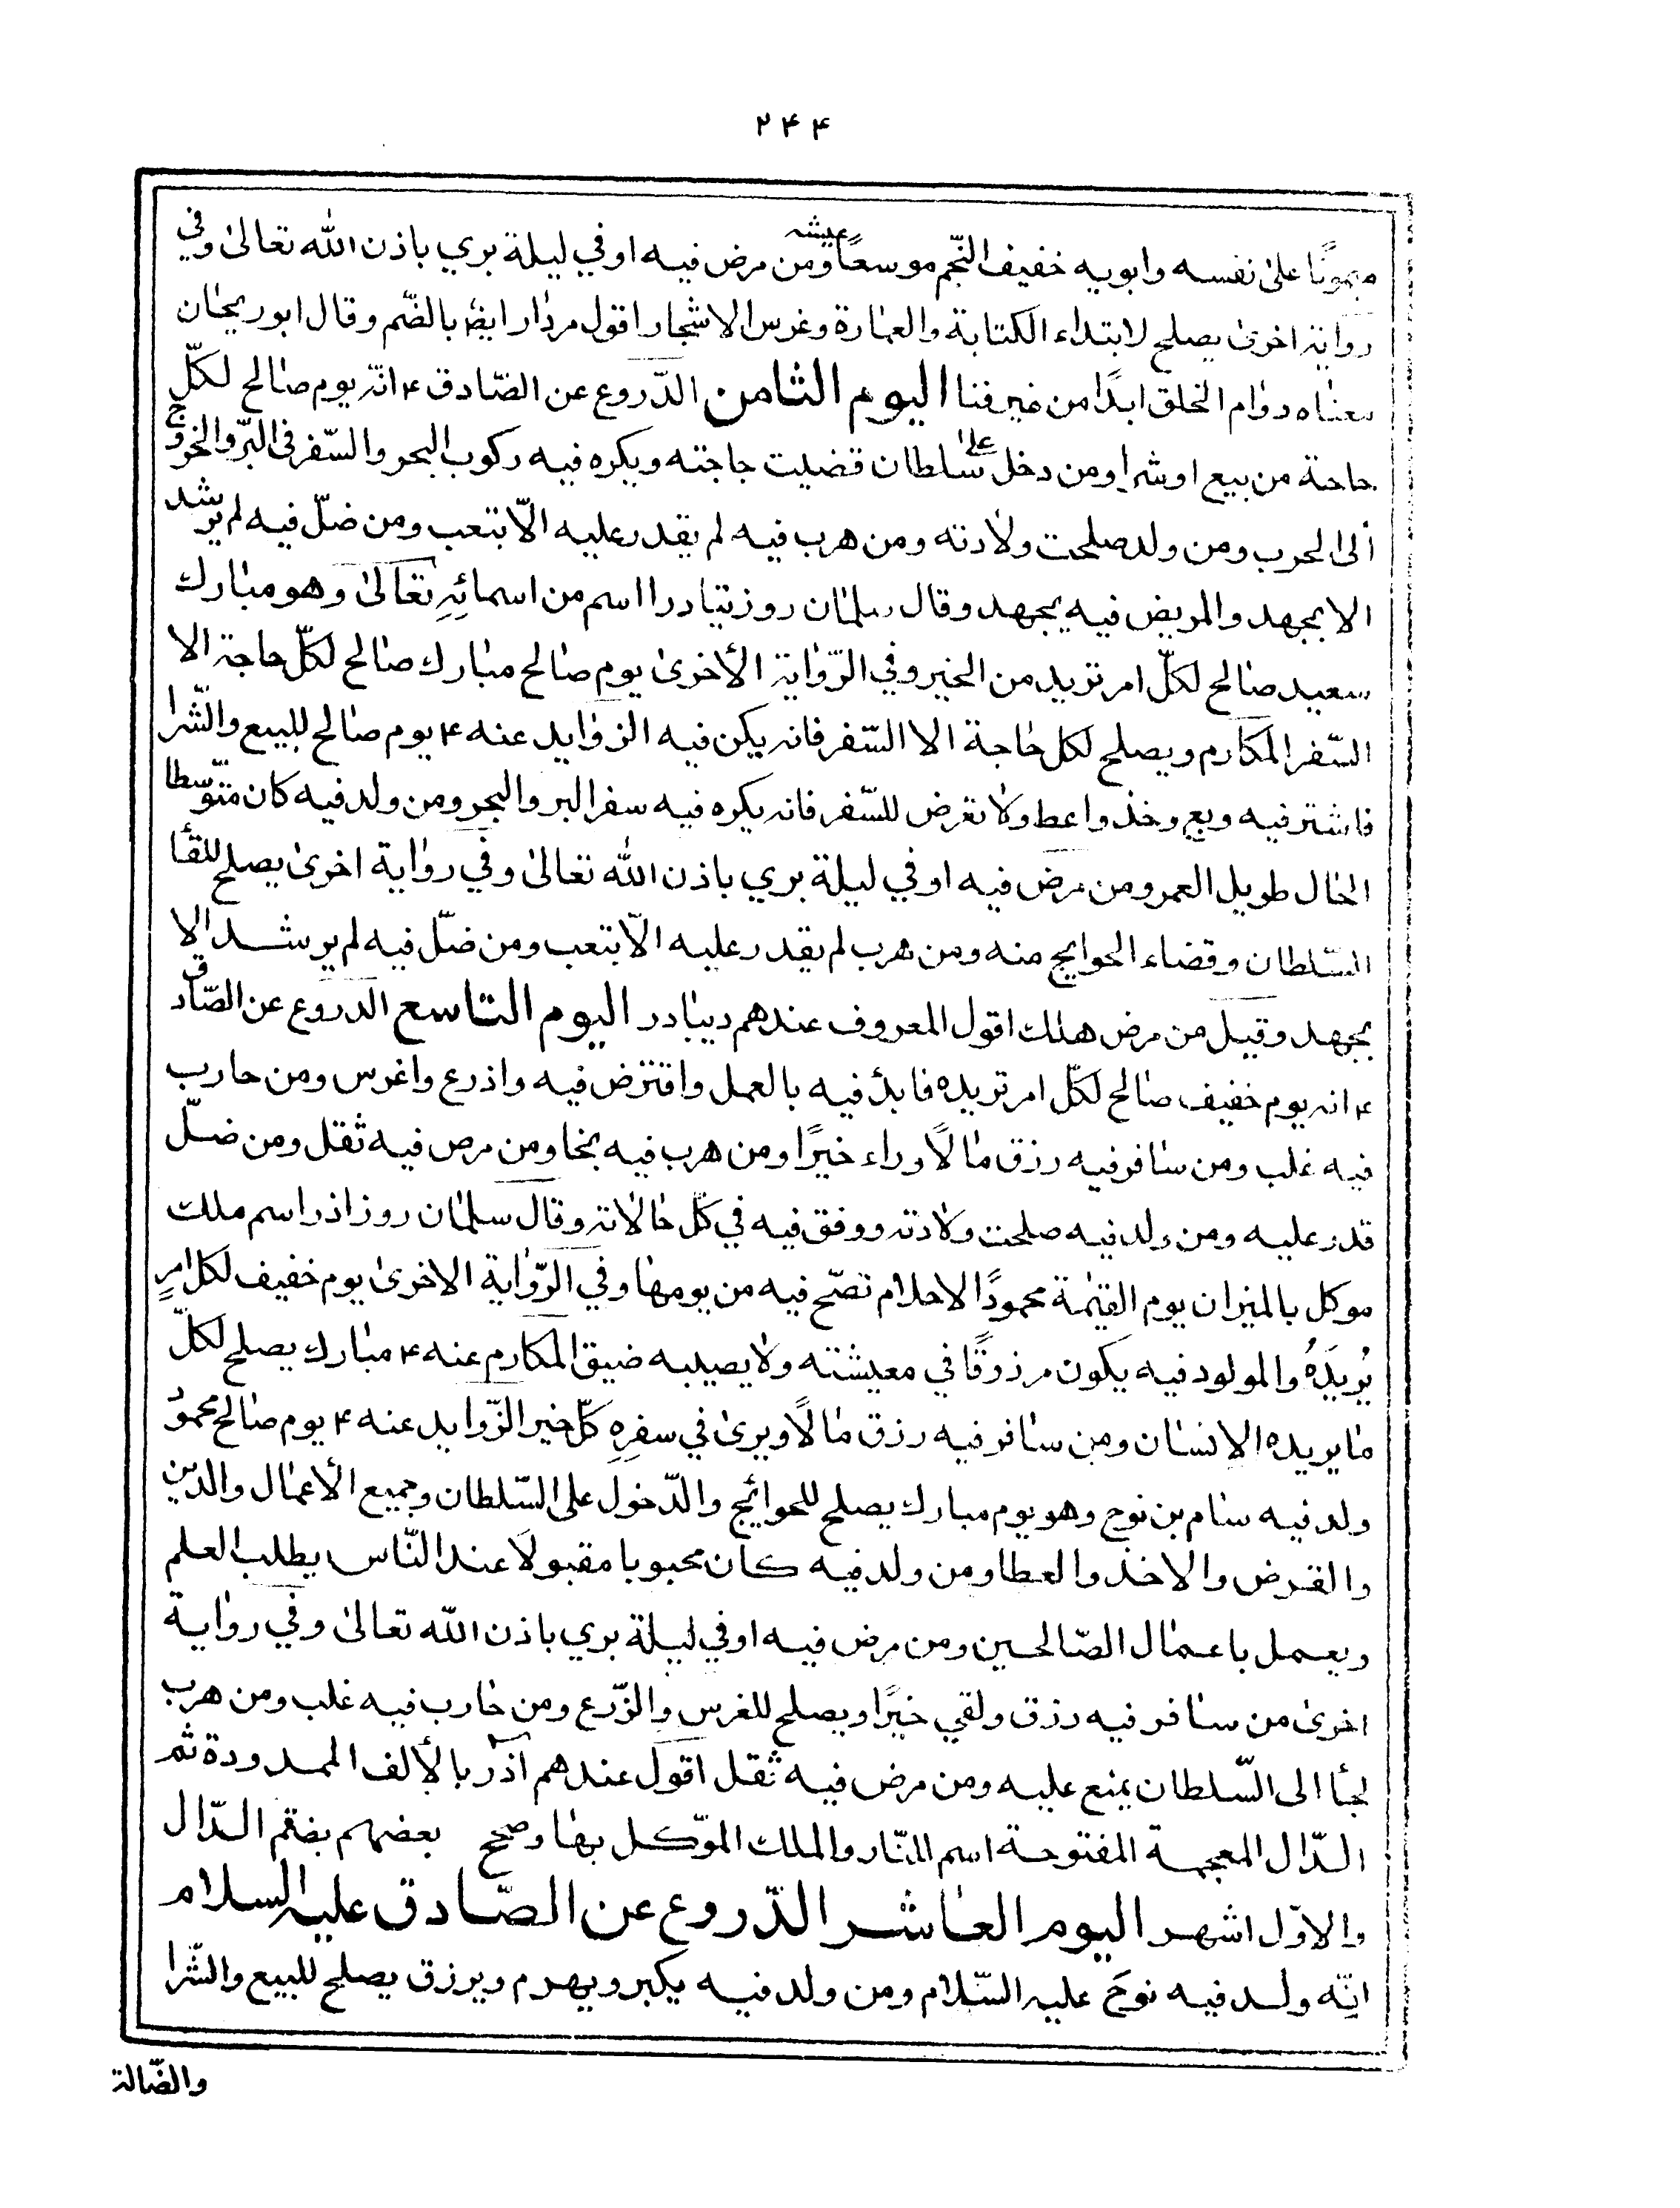 ۲۴۴
ميمونًا علىٰ نفسه وابويه خفيف النّجم موسعًا عيشه ومن مرض فيه او في ليلة بري باذن الله تعالىٰ وفي
رواية اخرىٰ يصلح لابتداء الكتابة والعمارة وغرس الاشجار اقول مرداد ايضًا بالضّم وقال ابو ريحان
معناه دوام الخلق ابدًا من غير فنا اليوم الثامن الدّروع عن الصّادق ۴ انّه يوم صالح لكلّ
حاجة من بيع او شرا ومن دخل علىٰ سلطان قضيت حاجته ويكره فيه ركوب البحر والسّفر في البرّ والخروج
الى الحرب ومن ولد صلحت ولادته ومن هرب فيه لم يقدر عليه الّا بتعب ومن ضلّ فيه لم يرشد
الا بجهد والمريض فيه يجهد وقال سلمان روز تيبادر اسم من اسمائِهِ تعالىٰ وهو مبارك
سعيد صالح لكلّ امر تريد من الخير وفي الرّواية الأخرىٰ يوم صالح مبارك صالح لكلّ حاجة الا
السّفر المكارم ويصلح لكل حاجة الا السّفر فانه يكن فيه الزوايد عنه ۴ يوم صالح للبيع والشّرا
فاشتر فيه وبع وخذ واعط ولا تعرض للسّفر فانه يكره فيه سفر البر والبحر ومن ولد فيه كان متوسّطا
الحال طويل العمر ومن مرض فيه او في ليلة بري باذن الله تعالىٰ وفي رواية اخرىٰ يصلح للقأ
السّلطان وقضاء الحوايج منه ومن هرب لم يقدر عليه الّا بتعب ومن ضلّ فيه لم يرشد الا
بجهد وقيل من مرض هلك اقول المعروف عندهم ديبادر اليوم التاسع الدروع عن الصّادق
۴ انه يوم خفيف صالح لكلّ امر تريده فابدأ فيه بالعمل واقترض فيه وازرع واغرس ومن حارب
فيه غلب ومن سافر فيه رزق مالًا وراء خيرًا ومن هرب فيه نجا ومن مرض فيه ثقل ومن ضلّ
قدر عليه ومن ولد فيه صلحت ولادته ووفق فيه في كلّ حالاته وقال سلمان روز اذر اسم ملك
موكل بالميزان يوم القيٰمة محمودًا الاحلام تصّح فيه من يومها وفي الرّواية الاخرىٰ يوم خفيف لكل امرٍ
يُريدَهُ والمولود فيه يكون مرزوقًا في معيشته ولا يصيبه ضيق المكارم عنه ۴ مبارك يصلح لكلّ
ما يريده الانسان ومن سافر فيه رزق مالًا ويرىٰ في سفرِهِ كلّ خير الزّوايد عنه ۴ يوم صالح محمود
ولد فيه سام بن نوح وهو يوم مبارك يصلح للحوائج والدّخول على السّلطان وجميع الأعمال والدّين
والقرض والاخذ والعطا ومن ولد فيه كان محبوبا مقبولًا عند النّاس يطلب العلم
ويعمل باعمال الصّالحين ومن مرض فيه او في ليلة بري باذن الله تعالىٰ وفي رواية
اخرىٰ من سافر فيه رزق ولقي خيرًا ويصلح للغرس والزّرع ومن حارب فيه غلب ومن هرب
لجأ الى السّلطان يمنع عليه ومن مرض فيه ثقل اقول عندهم آذر بالألف الممدودة ثم
الدّال المعجمة المفتوحة اسم للنّار والملك الموّكل بها وصحح بعضهم بضمّ الدّال
والاوّل اشهر اليوم العاشر الدّروع عن الصّادق عليه السلام
انّه ولد فيه نوحَ عليه السّلام ومن ولد فيه يكبر ويهرم ويرزق يصلح للبيع والشّرا
والضّالة